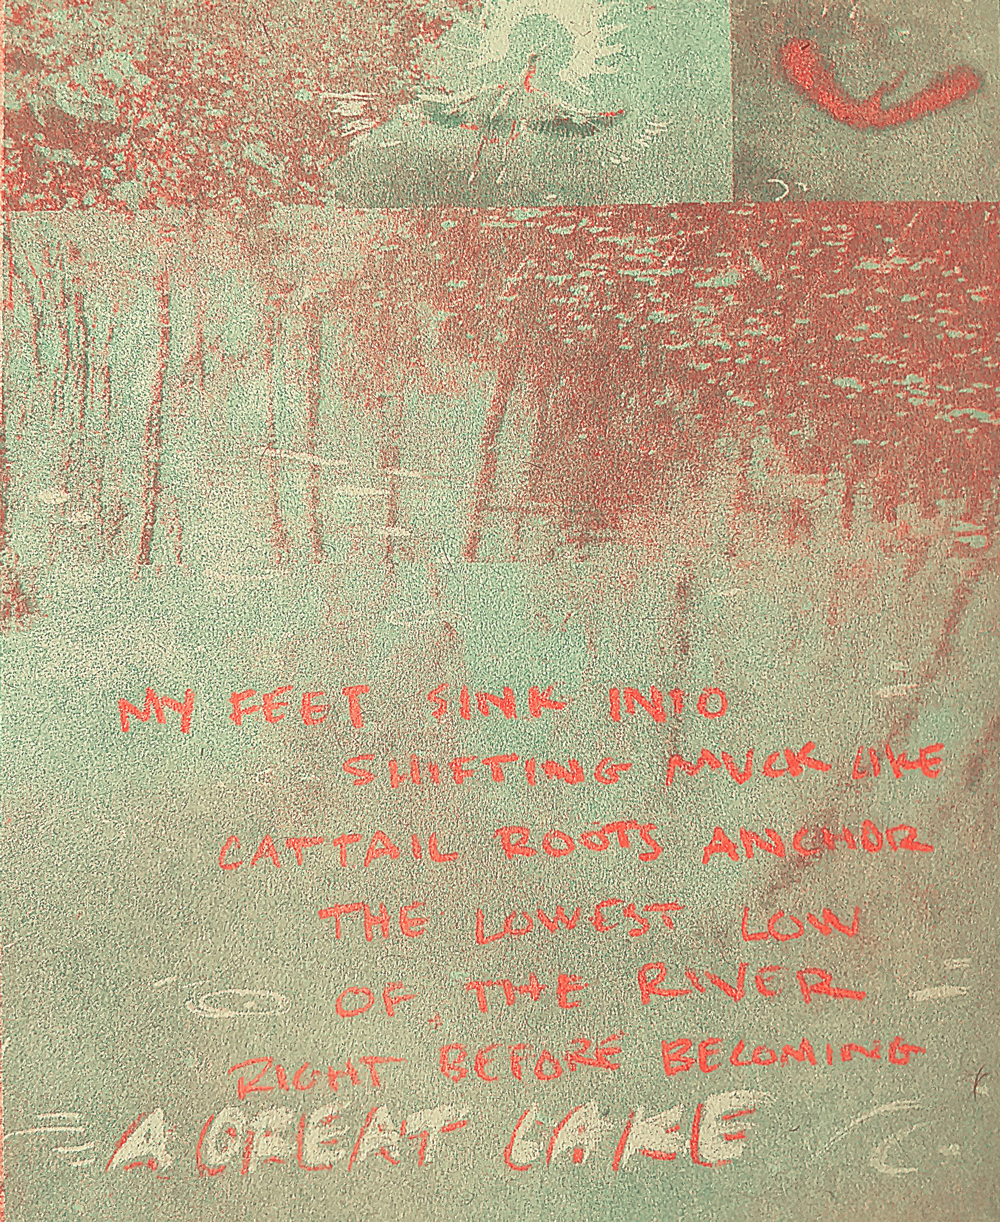 MY FEET SINK INTO
SHIFTING MUCK LIKE
CATTAIL ROOTS ANCHOR
THE LOWEST LOW
OF THE RIVER
RIGHT BEFORE BECOMING
A GREAT LAKE